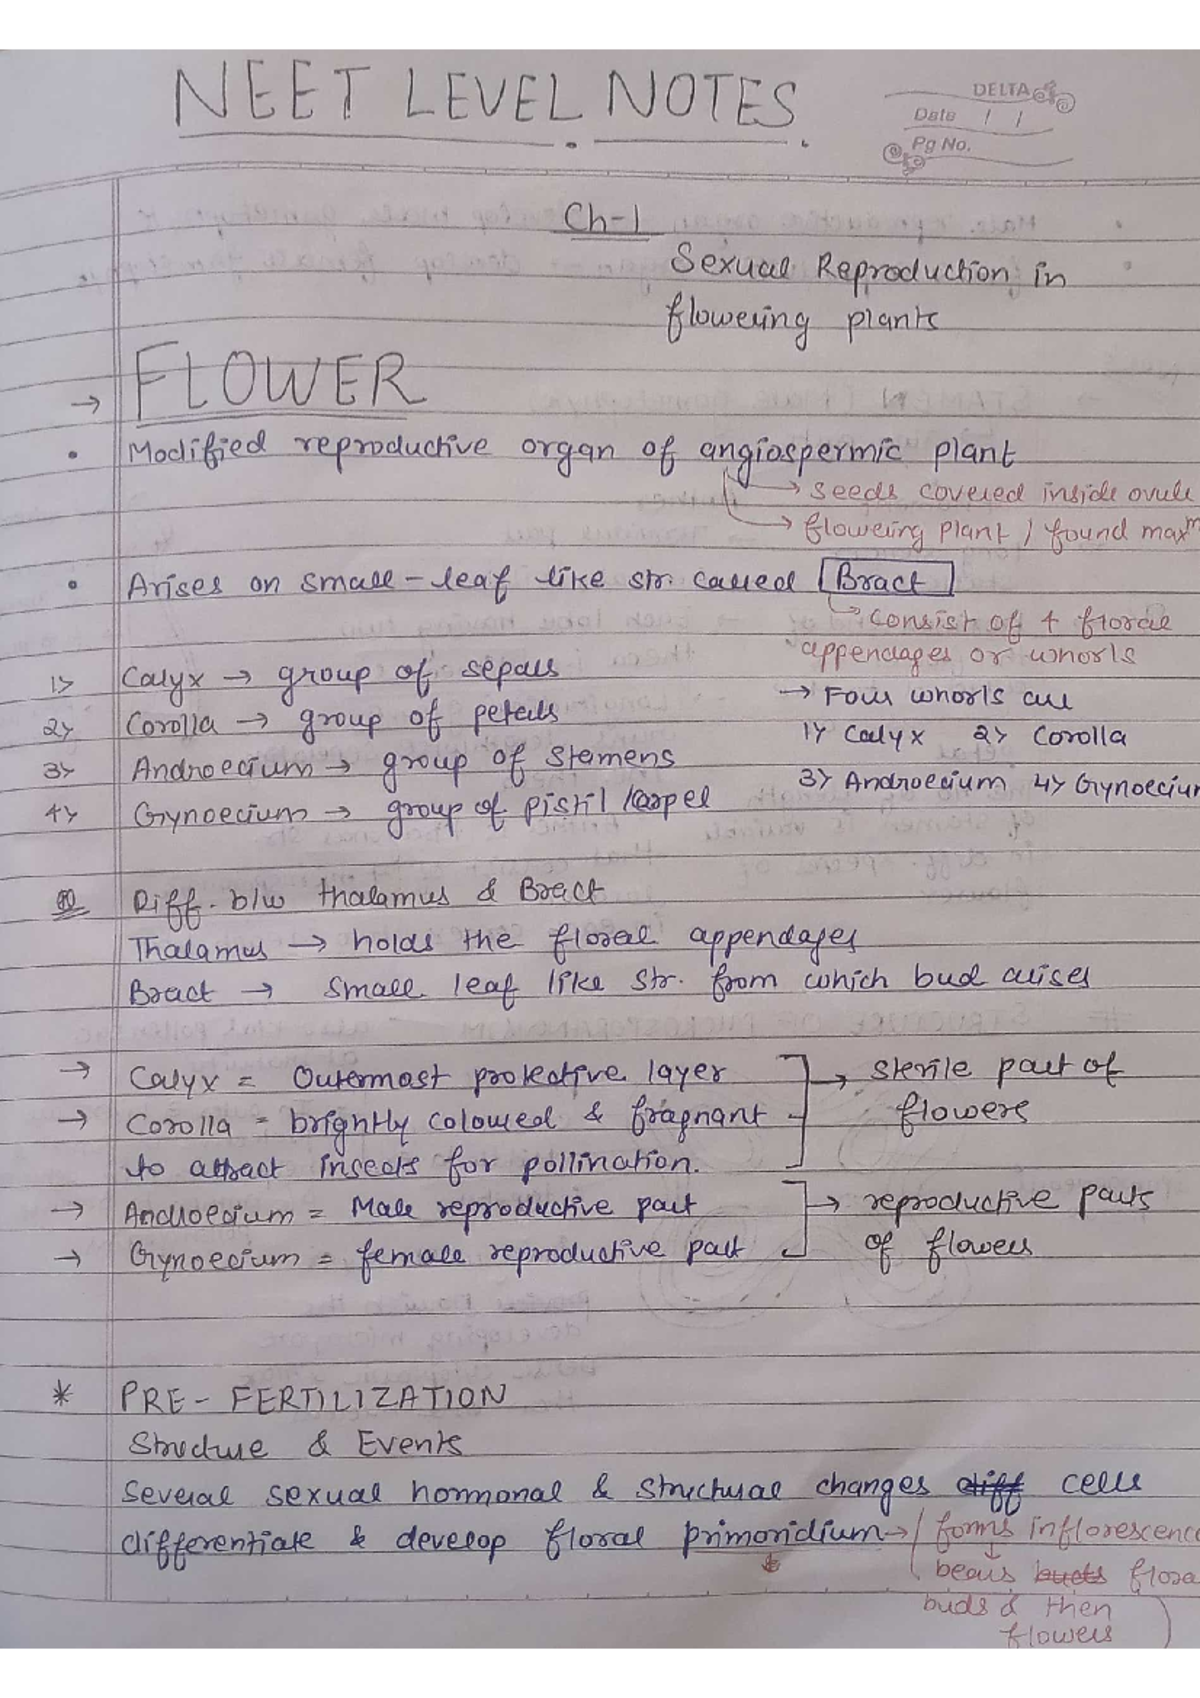 NEET LEVEL NOTES.
DELTA
Date / /
Pg No.
Ch-1
Sexual Reproduction in
flowering plants
→ FLOWER
• Modified reproductive organ of angiospermic plant
→ seeds covered inside ovule
→ flowering plant / found maxm
• Arises on small-leaf like str. called Bract
→ consist of 4 floral
appendages or whorls
1> Calyx → group of sepals
→ Four whorls are
2> Corolla → group of petals
1> Calyx 2> Corolla
3> Androecium → group of stamens
3> Androecium 4> Gynoecium
4> Gynoecium → group of pistil / carpel
Q Diff. b/w thalamus & Bract
Thalamus → holds the floral appendages
Bract → small leaf like str. from which bud arises
→ Calyx = Outermost protective layer → sterile part of
→ Corolla = brightly coloured & fragnant flowers
to attract insects for pollination.
→ Androecium = Male reproductive part → reproductive parts
→ Gynoecium = female reproductive part of flowers
* PRE-FERTILIZATION
Structure & Events
Several sexual hormonal & structural changes diff cells
differentiate & develop floral primoridium → ( forms inflorescence
bears buds flora
buds & then
flowers )